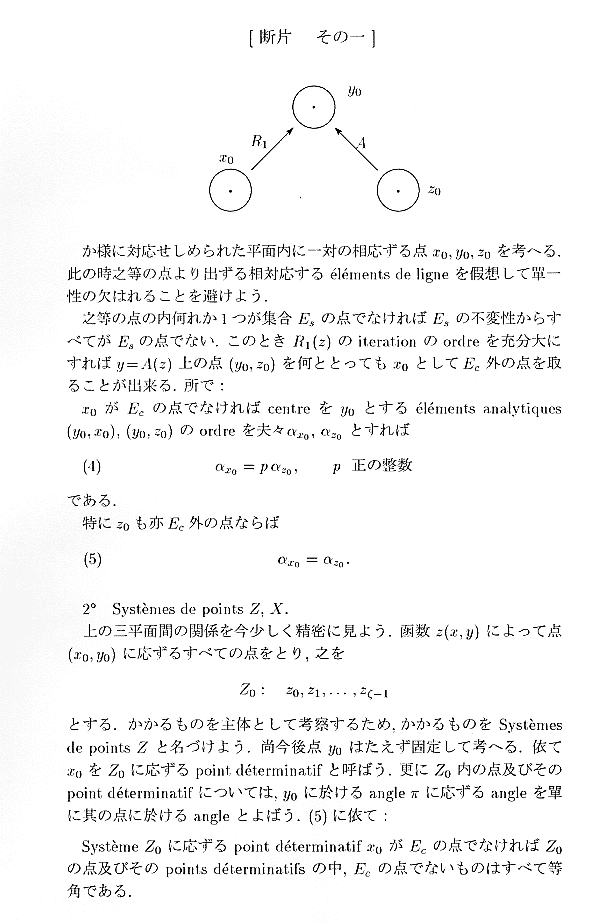 [ 断片　その一 ]
y₀
R₁
A
x₀
z₀
か様に対応せしめられた平面内に一対の相応ずる点 x₀, y₀, z₀ を考へる.
此の時之等の点より出ずる相対応する éléments de ligne を假想して單一
性の欠はれることを避けよう.
之等の点の内何れか1つが集合 Eₛ の点でなければ Eₛ の不変性からす
べてが Eₛ の点でない. このとき R₁(z) の iteration の ordre を充分大に
すれば y=A(z) 上の点 (y₀, z₀) を何ととっても x₀ として E꜀ 外の点を取
ることが出来る. 所で :
x₀ が E꜀ の点でなければ centre を y₀ とする éléments analytiques
(y₀, x₀), (y₀, z₀) の ordre を夫々 α_{x₀}, α_{z₀} とすれば
(4)　α_{x₀} = p α_{z₀},　p 正の整数
である.
特に z₀ も亦 E꜀ 外の点ならば
(5)　α_{x₀} = α_{z₀}.
2° Systèmes de points Z, X.
上の三平面間の関係を今少しく精密に見よう. 函数 z(x, y) によって点
(x₀, y₀) に応ずるすべての点をとり, 之を
Z₀ :　z₀, z₁, . . . , z_{ζ−1}
とする. かかるものを主体として考察するため, かかるものを Systèmes
de points Z と名づけよう. 尚今後点 y₀ はたえず固定して考へる. 依て
x₀ を Z₀ に応ずる point déterminatif と呼ばう. 更に Z₀ 内の点及びその
point déterminatif については, y₀ に於ける angle π に応ずる angle を單
に其の点に於ける angle とよばう. (5) に依て :
Système Z₀ に応ずる point déterminatif x₀ が E꜀ の点でなければ Z₀
の点及びその points déterminatifs の中, E꜀ の点でないものはすべて等
角である.